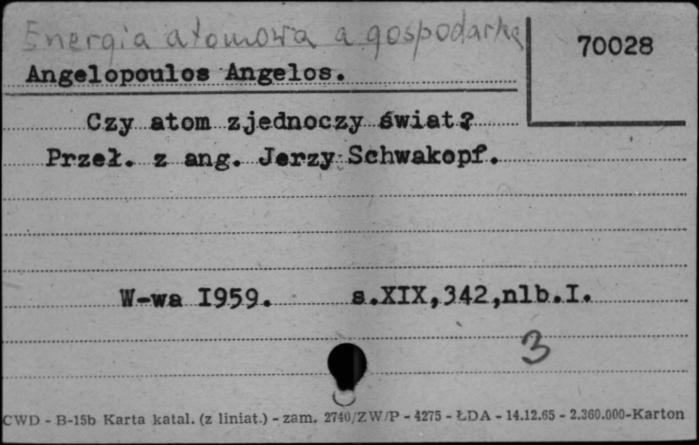 Energia atomowa a gospodarka
70028
Angelopoulos Angelos.
Czy atom zjednoczy świat?
Przeł. z ang. Jerzy Schwakopf.
W-wa I959. s.XIX,342,nlb.I.
3
CWD - B-15b Karta katal. (z liniat.) - zam. 2740/ZW/P - 4275 - ŁDA - 14.12.65 - 2.360.000-Karton